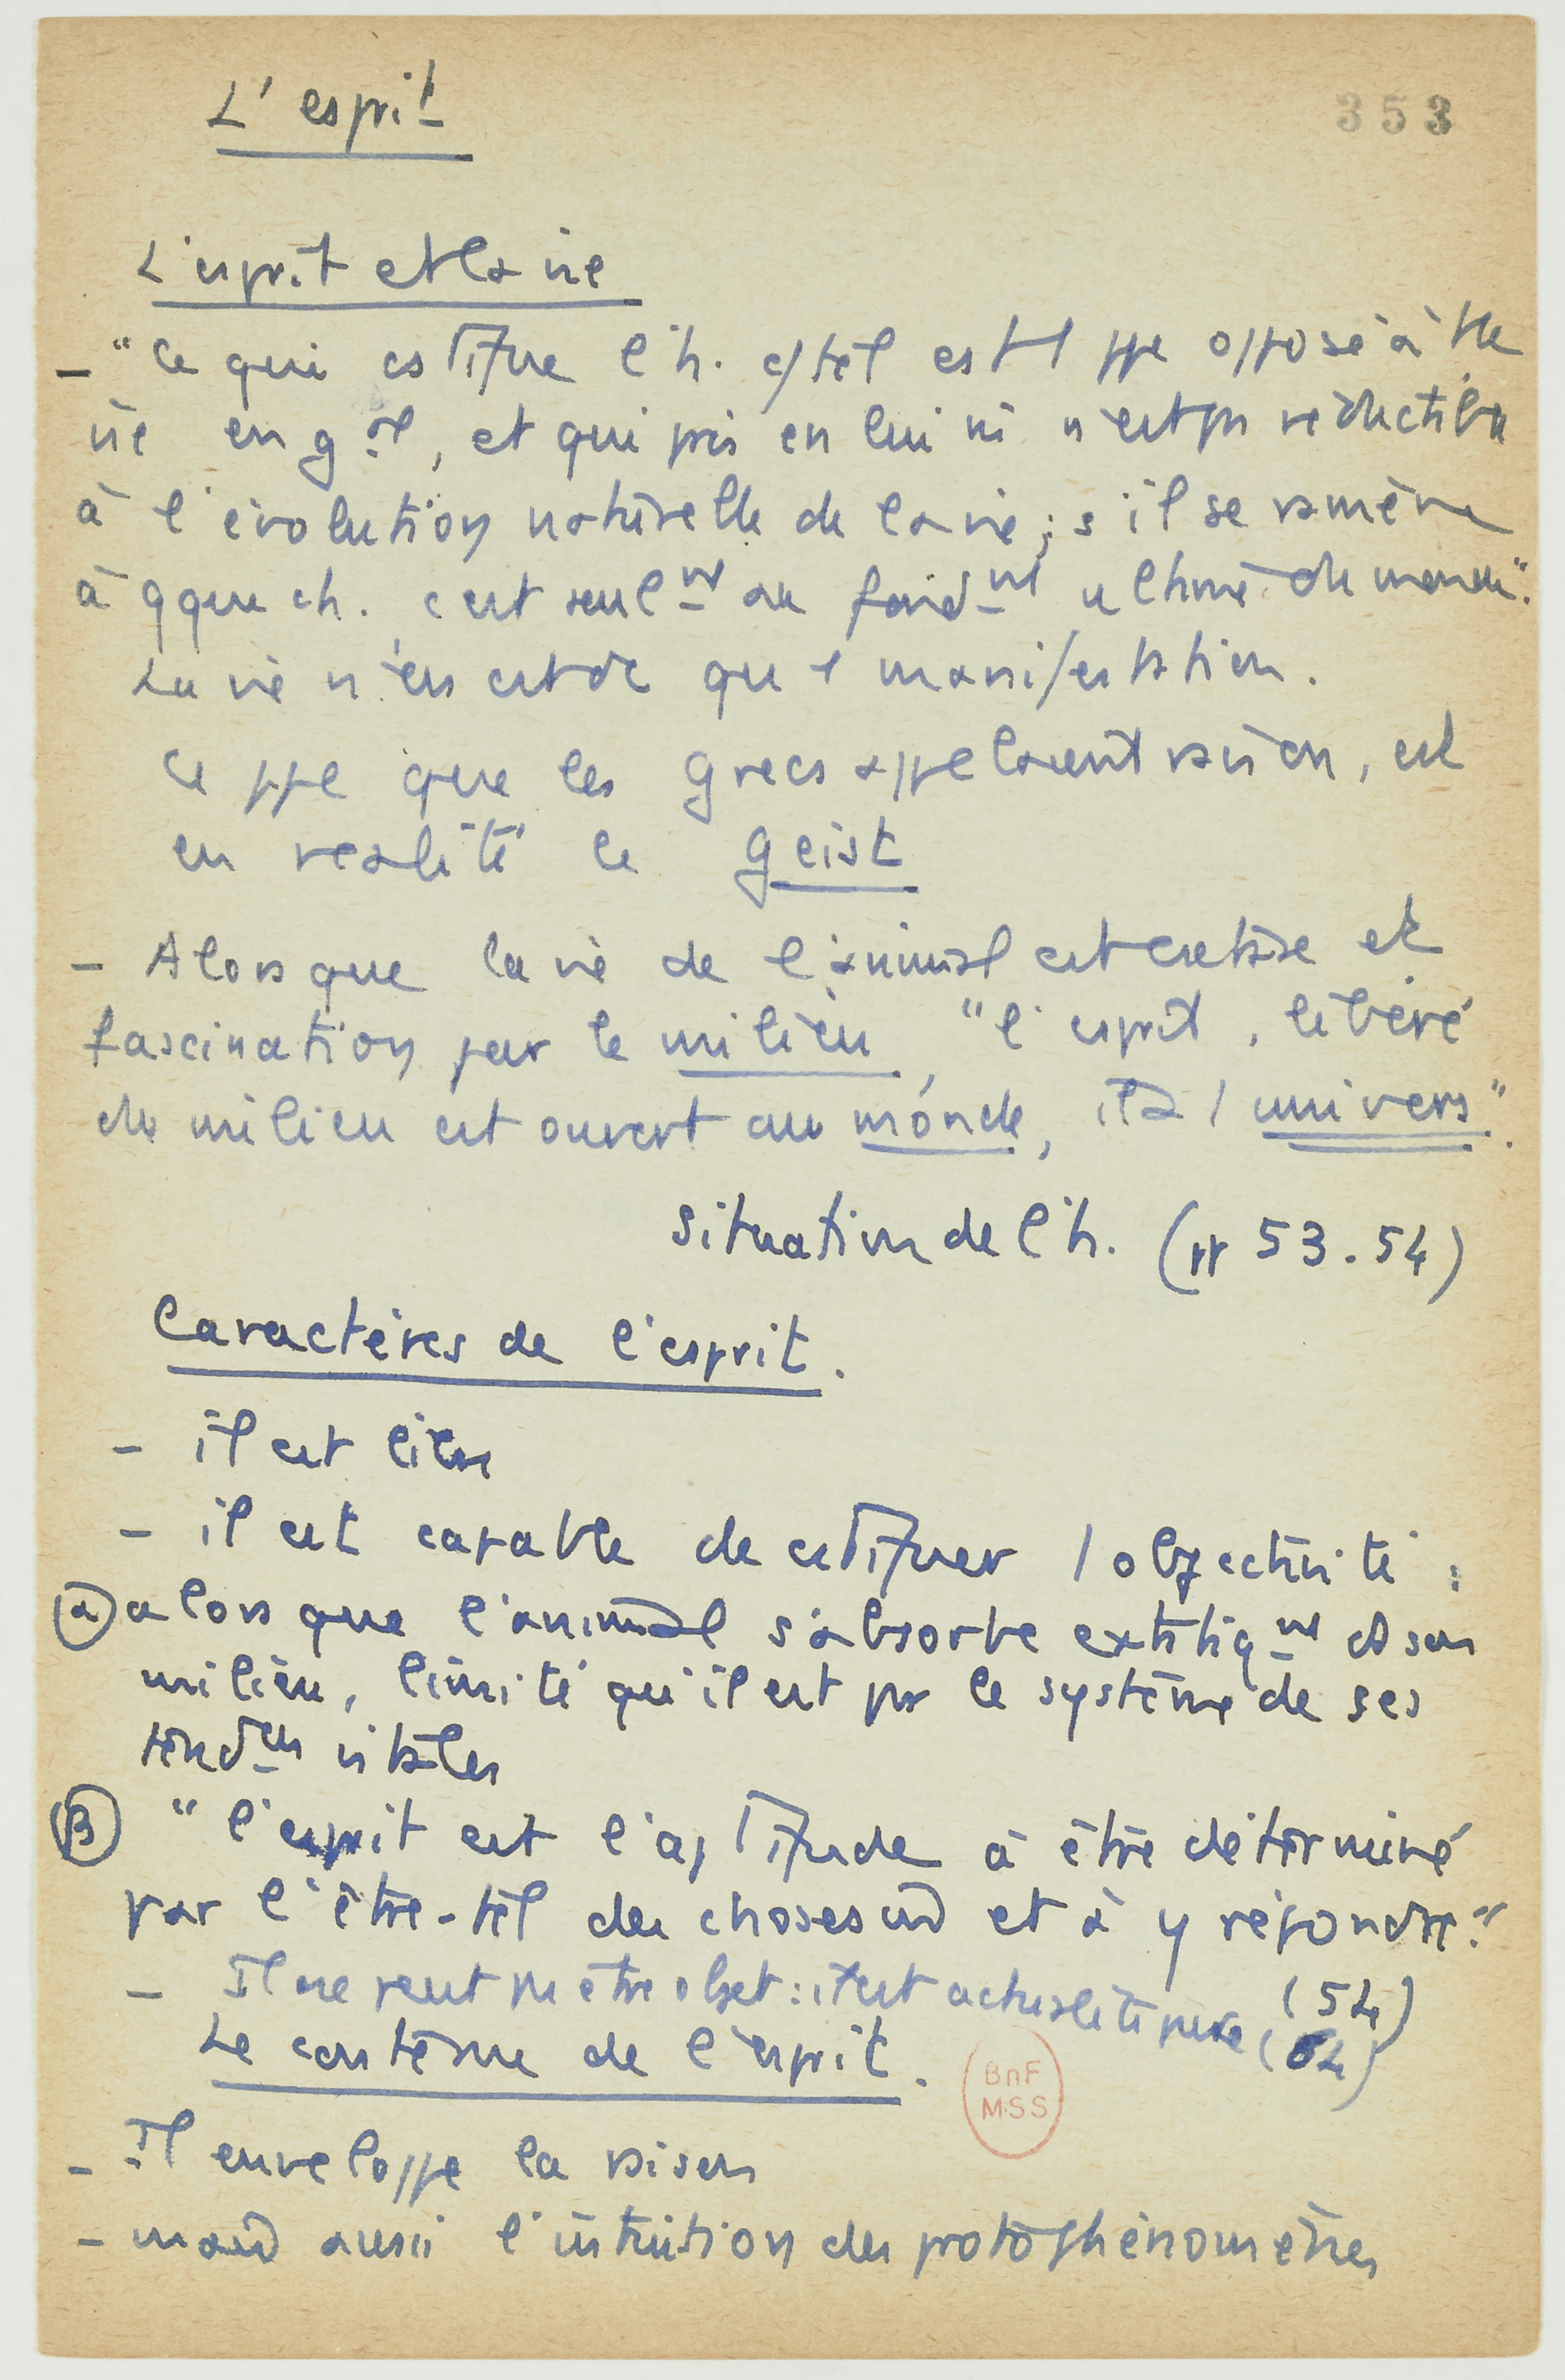 L'esprit
353
L'esprit et la vie
- "Ce qui cstitue l'h. c/ tel est 1 ppe opposé à tte
vie en gal, et qui pris en lui m n'est pas réductible
à l'évolution naturelle de la vie ; s'il se ramène
à qque ch. c'est seulnt au fondnt ultime du monde".
La vie n'en est dc que 1 manifestation.
Ce ppe que les grecs appelaient raison, est
en réalité le Geist
- Alors que la vie de l'animal est extase et
fascination par le milieu, "l'esprit, libéré
du milieu est ouvert au monde, il a 1 univers".
Situation de l'h. (pp 53-54)
Caractères de l'esprit.
- il est libre
- il est capable de cstituer 1 objectivité :
(α) alors que l'animal s'absorbe extatiqnt ds son
milieu, limité qu'il est par le système de ses
tendces vitales
(β) "l'esprit est l'aptitude à être déterminé
par l'être-tel des choses et à y répondre."
(54)
- Il ne peut pas être objet : il est actualité pure (64)
Le contenu de l'esprit.
BnF
MSS
- Il enveloppe la raison
- mais aussi l'intuition des protophénomènes